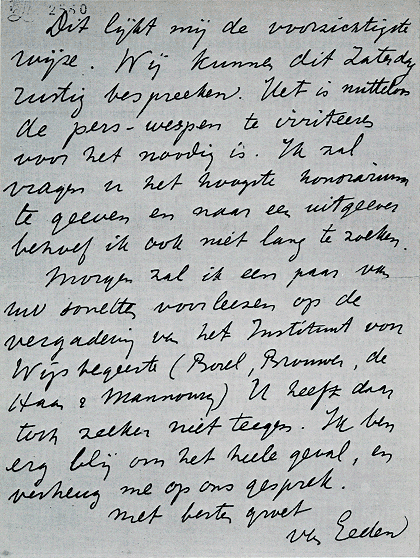 2550
Dit lijkt mij de voorzichtigste
wijze. Wij kunnen dit Zaterdag
rustig bespreeken. Het is nutteloos
de pers-wespen te irriteeren
voor het noodig is. Ik zal
vragen u het hoogste honorarium
te geeven en naar een uitgeever
behoef ik ook niet lang te zoeken.
Morgen zal ik een paar van
uw sonetten voorleezen op de
vergadering van het Instituut voor
Wijsbegeerte (Borel, Brouwer, de
Haan & Mannoury) U heeft daar
toch zeeker niet teegen. Ik ben
erg blij om het heele geval, en
verheug me op ons gesprek.
met besten groet
van Eeden